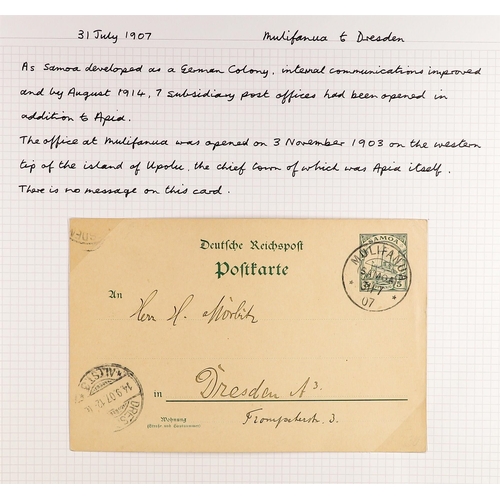 31 July 1907 Mulifanua to Dresden
As Samoa developed as a German Colony, internal communications improved
and by August 1914, 7 subsidiary post offices had been opened in
addition to Apia.
The office at Mulifanua was opened on 3 November 1903 on the western
tip of the island of Upolu, the chief town of which was Apia itself.
There is no message on this card.
Deutsche Reichspost
Postkarte
SAMOA
MULIFANUA
SAMOA
31/7
07
5
An
Herrn H. Mörbitz
in Dresden A3.
Trompeterstr. 3.
Wohnung
(Straße und Hausnummer)
DRES
14.9.07.12
ALTST.